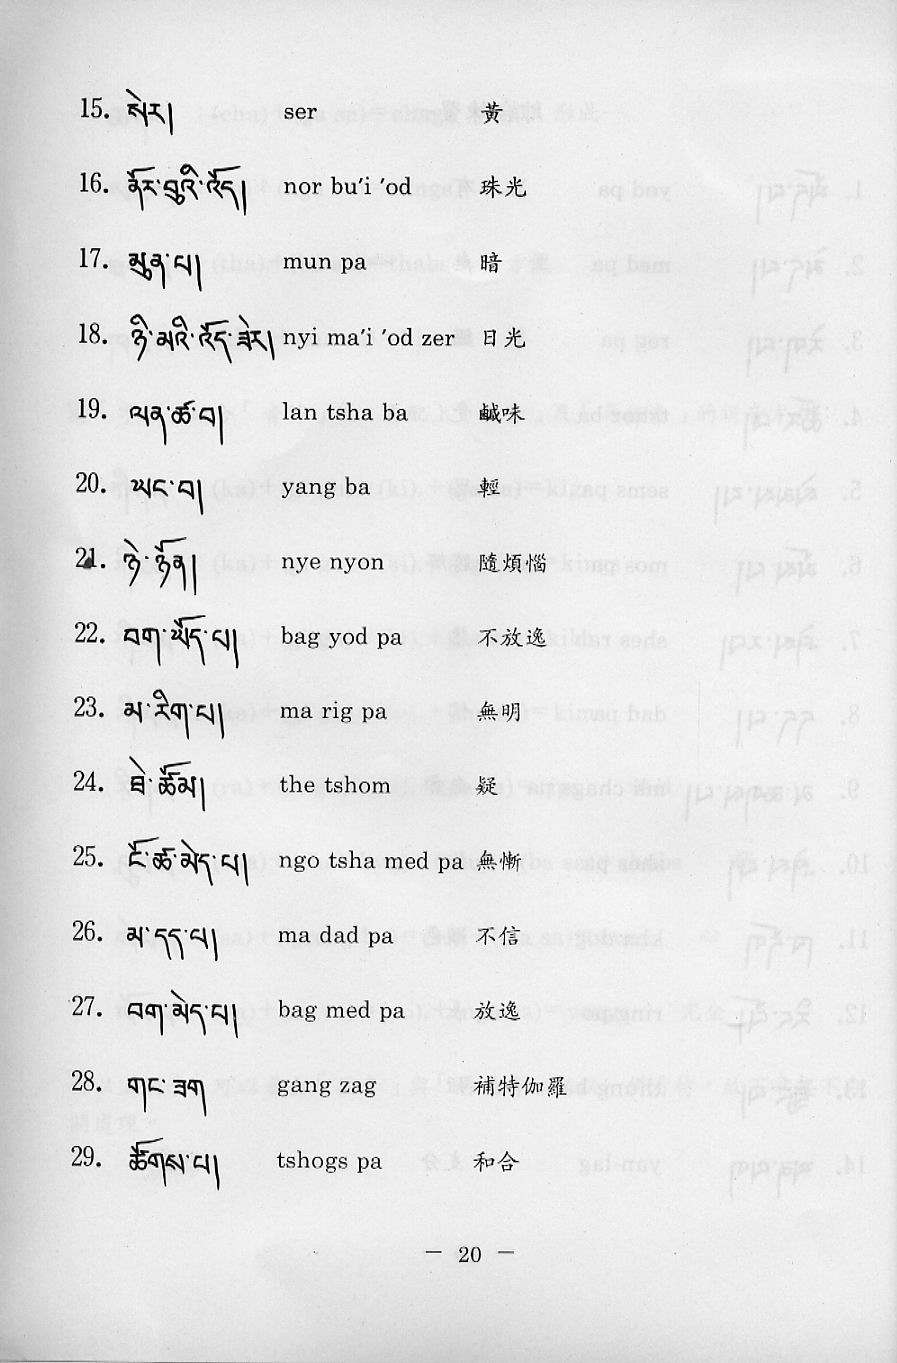 15. སེར། ser 黃
16. ནོར་བུའི་འོད། nor bu’i ’od 珠光
17. མུན་པ། mun pa 暗
18. ཉི་མའི་འོད་ཟེར། nyi ma’i ’od zer 日光
19. ལན་ཚ་བ། lan tsha ba 鹹味
20. ཡང་བ། yang ba 輕
21. ཉེ་ཉོན། nye nyon 隨煩惱
22. བག་ཡོད་པ། bag yod pa 不放逸
23. མ་རིག་པ། ma rig pa 無明
24. ཐེ་ཚོམ། the tshom 疑
25. ངོ་ཚ་མེད་པ། ngo tsha med pa 無慚
26. མ་དད་པ། ma dad pa 不信
27. བག་མེད་པ། bag med pa 放逸
28. གང་ཟག gang zag 補特伽羅
29. ཚོགས་པ། tshogs pa 和合
— 20 —